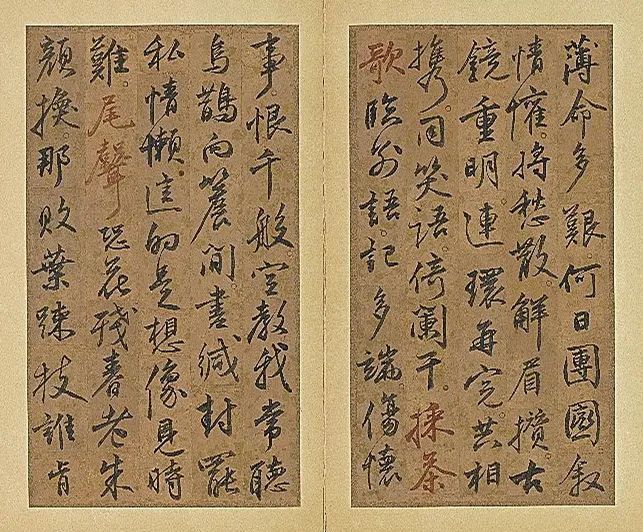 薄命多艱何日團圓敘
情懽將愁散解眉攢古
鏡重明連環再完共相
携同笑語倚闌干採茶
歌臨別語記多端傷懷
事恨千般空教我常聽
烏鵲向簷間書緘封罷
私情懶這的是想像見時
難尾聲恐花殘春老朱
顏換那敗葉踈枝誰肯